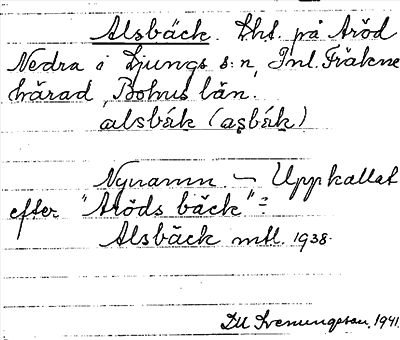 Alsbäck. Lht. på Aröd
Nedra i Ljungs s:n, Inl. Fräkne
härad, Bohus län.
alsbäk (asbäk)
Nynamn. – Uppkallat
efter "Aröds bäck" =
Alsbäck mtl. 1938.
Svenungsson. 1941.